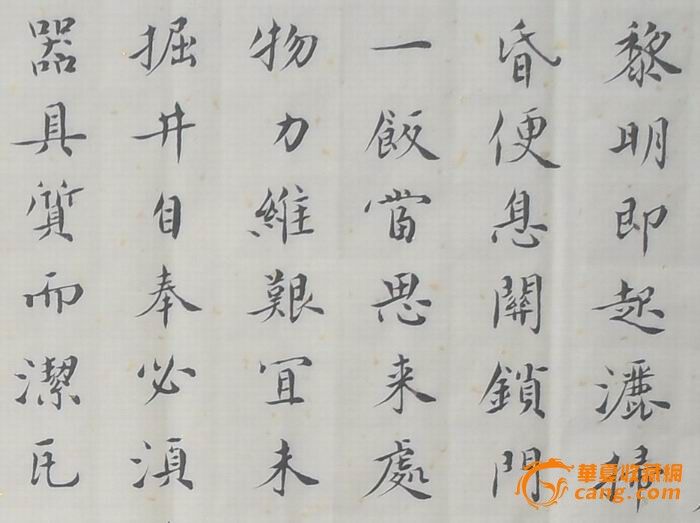 黎明即起灑掃
昏便息關鎖門
一飯當思来處
物力維艱宜未
掘井自奉必須
器具質而潔瓦
華夏收藏網
cang.com